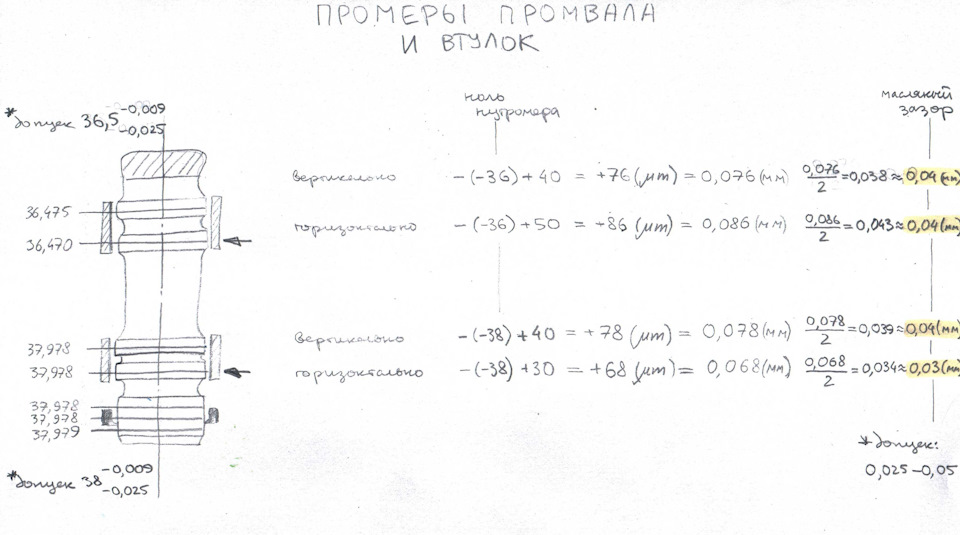 ПРОМЕРЫ ПРОМВАЛА
И ВТУЛОК
*допуск 36,5 -0,009 -0,025
ноль нутромера
масляный зазор
36,475
36,470
вертикально -(-36) + 40 = +76 (μm) = 0,076 (мм) 0,076/2 = 0,038 ≈ 0,04 (мм)
горизонтально -(-36) + 50 = +86 (μm) = 0,086 (мм) 0,086/2 = 0,043 ≈ 0,04 (мм)
37,978
37,978
вертикально -(-38) + 40 = +78 (μm) = 0,078 (мм) 0,078/2 = 0,039 ≈ 0,04 (мм)
горизонтально -(-38) + 30 = +68 (μm) = 0,068 (мм) 0,068/2 = 0,034 ≈ 0,03 (мм)
37,978
37,978
37,979
*допуск 38 -0,009 -0,025
*допуск:
0,025-0,05